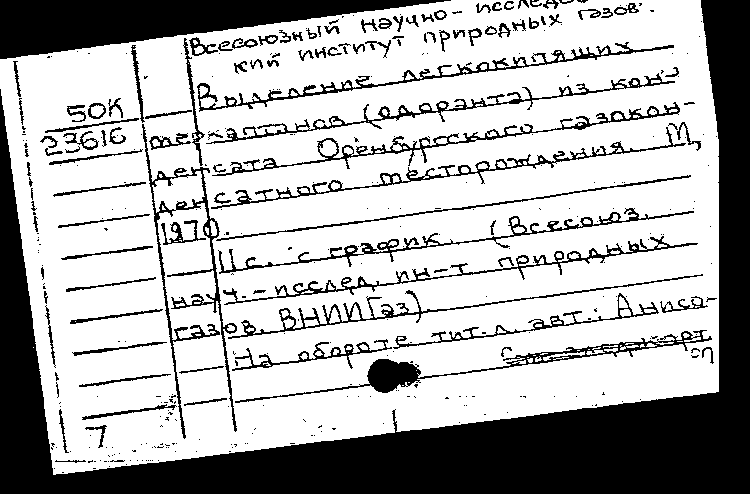 Всесоюзный научно-исследо
кий институт природных газов.
50К
23616
Выделение легкокипящих
меркаптанов (одоранта) из кон-
денсата Оренбургского газокон-
денсатного месторождения. М,
1970.
11 с. с график. (Всесоюз.
науч.-исслед. ин-т природных
газов. ВНИИГаз).
На обороте тит. л. авт.: Анисо-
7